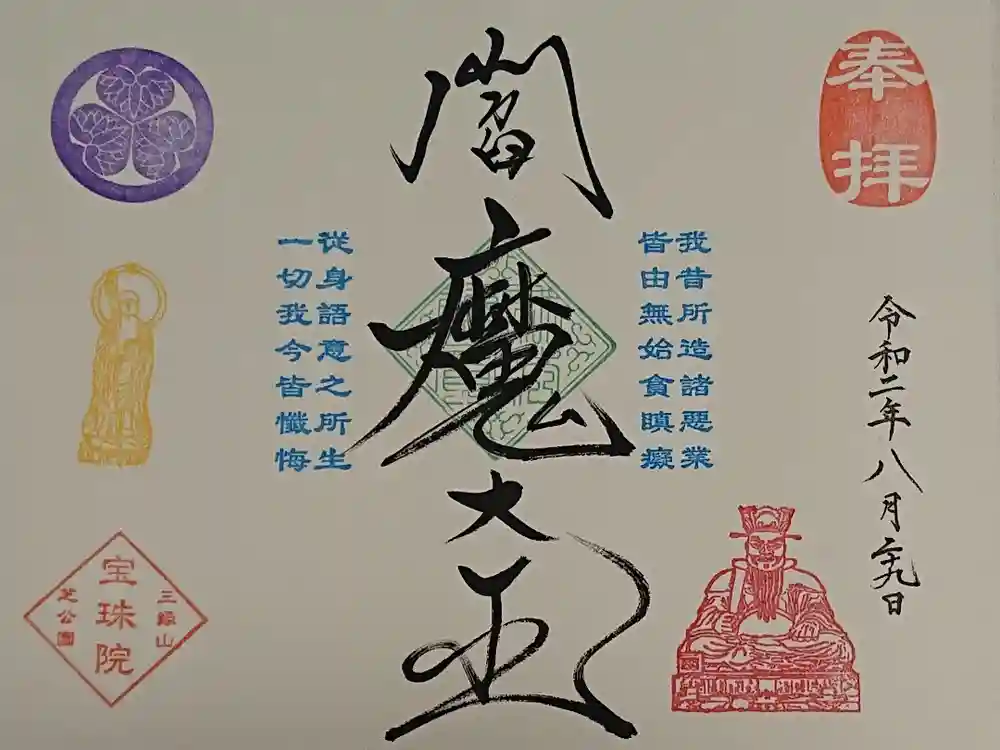 奉拝
令和二年八月二十九日
我昔所造諸惡業
皆由無始貪瞋癡
閻魔大王
從身語意之所生
一切我今皆懺悔
三縁山
宝珠院
芝公園